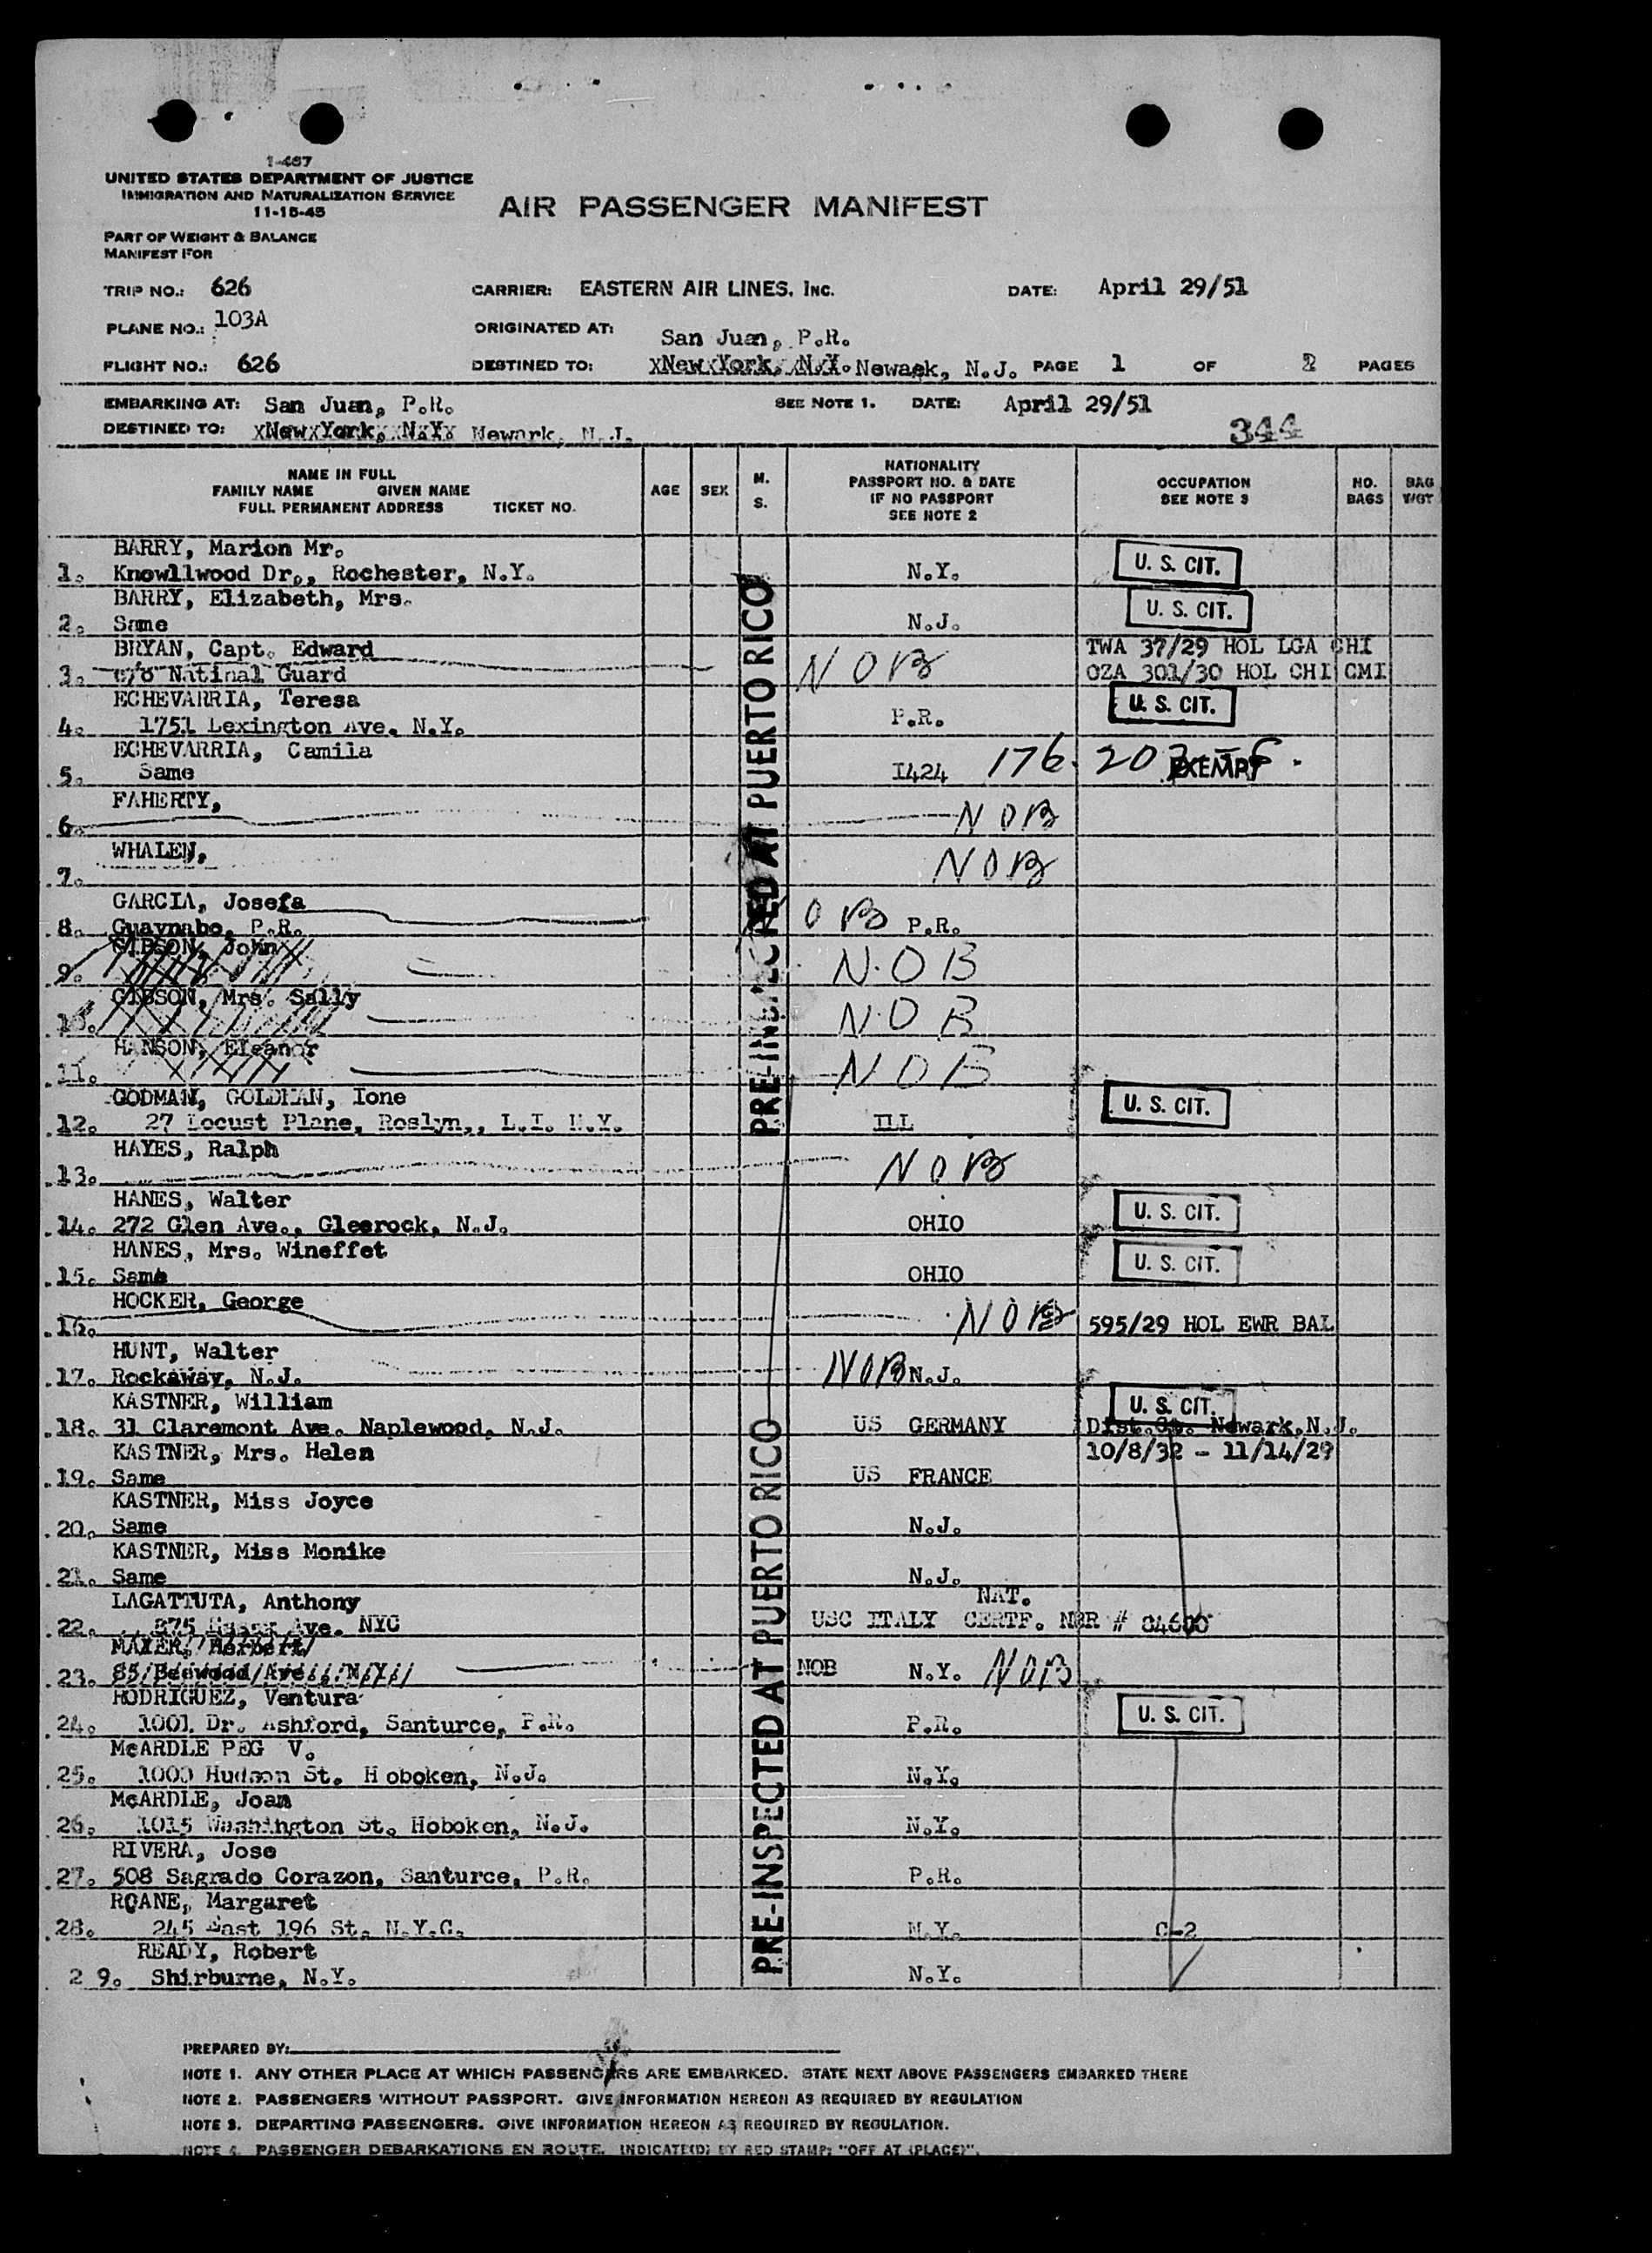 1-467
UNITED STATES DEPARTMENT OF JUSTICE
IMMIGRATION AND NATURALIZATION SERVICE
11-15-45
AIR PASSENGER MANIFEST
PART OF WEIGHT & BALANCE
MANIFEST FOR
TRIP NO.: 626 CARRIER: EASTERN AIR LINES, INC. DATE: April 29/51
PLANE NO.: 103A ORIGINATED AT: San Juan, P.R.
FLIGHT NO.: 626 DESTINED TO: xNewxYork,xN.Y. Newark, N.J. PAGE 1 OF 2 PAGES
EMBARKING AT: San Juan, P.R. SEE NOTE 1. DATE: April 29/51
DESTINED TO: xNewxYork,xxN.Y.x Newark, N.J. 344
NAME IN FULL
FAMILY NAME GIVEN NAME
FULL PERMANENT ADDRESS TICKET NO.
AGE SEX M. S.
NATIONALITY
PASSPORT NO. & DATE
IF NO PASSPORT
SEE NOTE 2
OCCUPATION
SEE NOTE 3
NO. BAGS
BAG WGT
PRE-INSPECTED AT PUERTO RICO
BARRY, Marion Mr.
1. Knowllwood Dr., Rochester, N.Y. N.Y. U. S. CIT.
BARRY, Elizabeth, Mrs.
2. Same N.J. U. S. CIT.
BRYAN, Capt. Edward NOB TWA 37/29 HOL LGA CHI
3. c/o Natinal Guard OZA 301/30 HOL CHI CMI
ECHEVARRIA, Teresa
4. 1751 Lexington Ave. N.Y. P.R. U. S. CIT.
ECHEVARRIA, Camila
5. Same I424 176. EXEMPT
FAHERTY,
6. NOB
WHALEN,
7. NOB
GARCIA, Josefa
8. Guaynabo, P.R. OB P.R.
GIBSON, John
9. N.OB
GIBSON, Mrs. Sally
10. NOB
HANSON, Eleanor
11. NOB
GODMAN, GOLDMAN, Ione
12. 27 Locust Plane, Roslyn,, L.I. N.Y. ILL U. S. CIT.
HAYES, Ralph
13. NOB
HANES, Walter
14. 272 Glen Ave., Gleerock, N.J. OHIO U. S. CIT.
HANES, Mrs. Wineffet
15. Same OHIO U. S. CIT.
HOCKER, George
16. NOB 595/29 HOL EWR BAL
HUNT, Walter
17. Rockaway, N.J. NOB N.J.
KASTNER, William U. S. CIT.
18. 31 Claremont Ave. Naplewood, N.J. US GERMANY Dist.Ct. Newark,N.J.
KASTNER, Mrs. Helen 10/8/32 - 11/14/29
19. Same US FRANCE
KASTNER, Miss Joyce
20. Same N.J.
KASTNER, Miss Monike
21. Same N.J.
LAGATTUTA, Anthony NAT.
22. Ave. NYC USC ITALY CERTF. NBR #
MAYER, Herbert
23. 85 Ave., N.Y. NOB N.Y. NOB
RODRIGUEZ, Ventura
24. 1001 Dr. Ashford, Santurce, P.R. P.R. U. S. CIT.
McARDLE PEG V.
25. 1000 Hudson St. Hoboken, N.J. N.Y.
McARDLE, Joan
26. 1015 Washington St. Hoboken, N.J. N.Y.
RIVERA, Jose
27. 508 Sagrado Corazon, Santurce, P.R. P.R.
ROANE, Margaret
28. 245 East 196 St. N.Y.C. N.Y. C-2
READY, Robert
2 9. Shirburne, N.Y. N.Y.
PRE-INSPECTED AT PUERTO RICO
PREPARED BY:
NOTE 1. ANY OTHER PLACE AT WHICH PASSENGERS ARE EMBARKED. STATE NEXT ABOVE PASSENGERS EMBARKED THERE
NOTE 2. PASSENGERS WITHOUT PASSPORT. GIVE INFORMATION HEREON AS REQUIRED BY REGULATION
NOTE 3. DEPARTING PASSENGERS. GIVE INFORMATION HEREON AS REQUIRED BY REGULATION.
NOTE 4. PASSENGER DEBARKATIONS EN ROUTE. INDICATE(D) BY RED STAMP: "OFF AT (PLACE)".